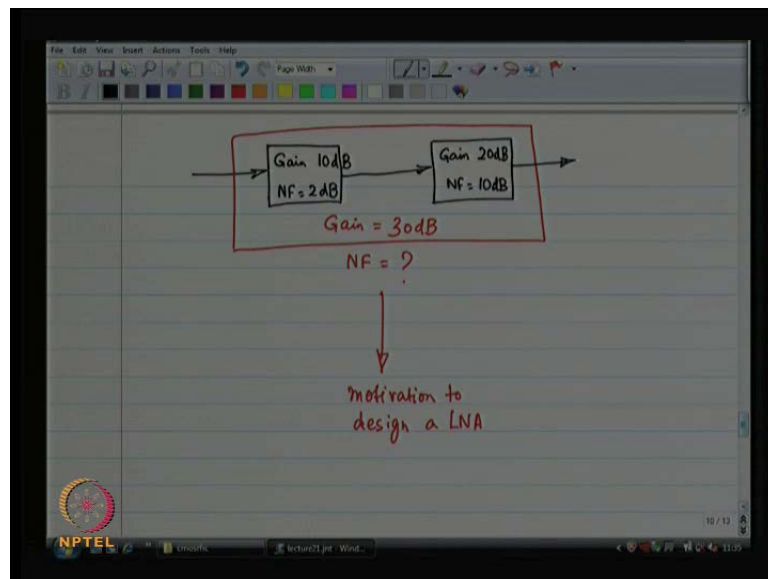 File Edit View Insert Actions Tools Help
Page Width
B I
Gain 10dB
NF = 2dB
Gain 20dB
NF = 10dB
Gain = 30dB
NF = ?
motivation to
design a LNA
10 / 13
NPTEL
cmosrfic
lecture21.jnt - Wind...
11:35